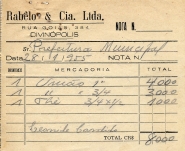 Rabelo & Cia. Ltda.
RUA GOIÁS, 364
DIVINÓPOLIS
NOTA N.
Sr. Prefeitura Municipal
Data 28/1/1955 NOTA N.
NÚMERO MERCADORIA TOTAL
1 União 1" 4,000
1 " " 3/4 3,000
1 3/4 x 1/2 1000
TOTAL CR$ 8,000